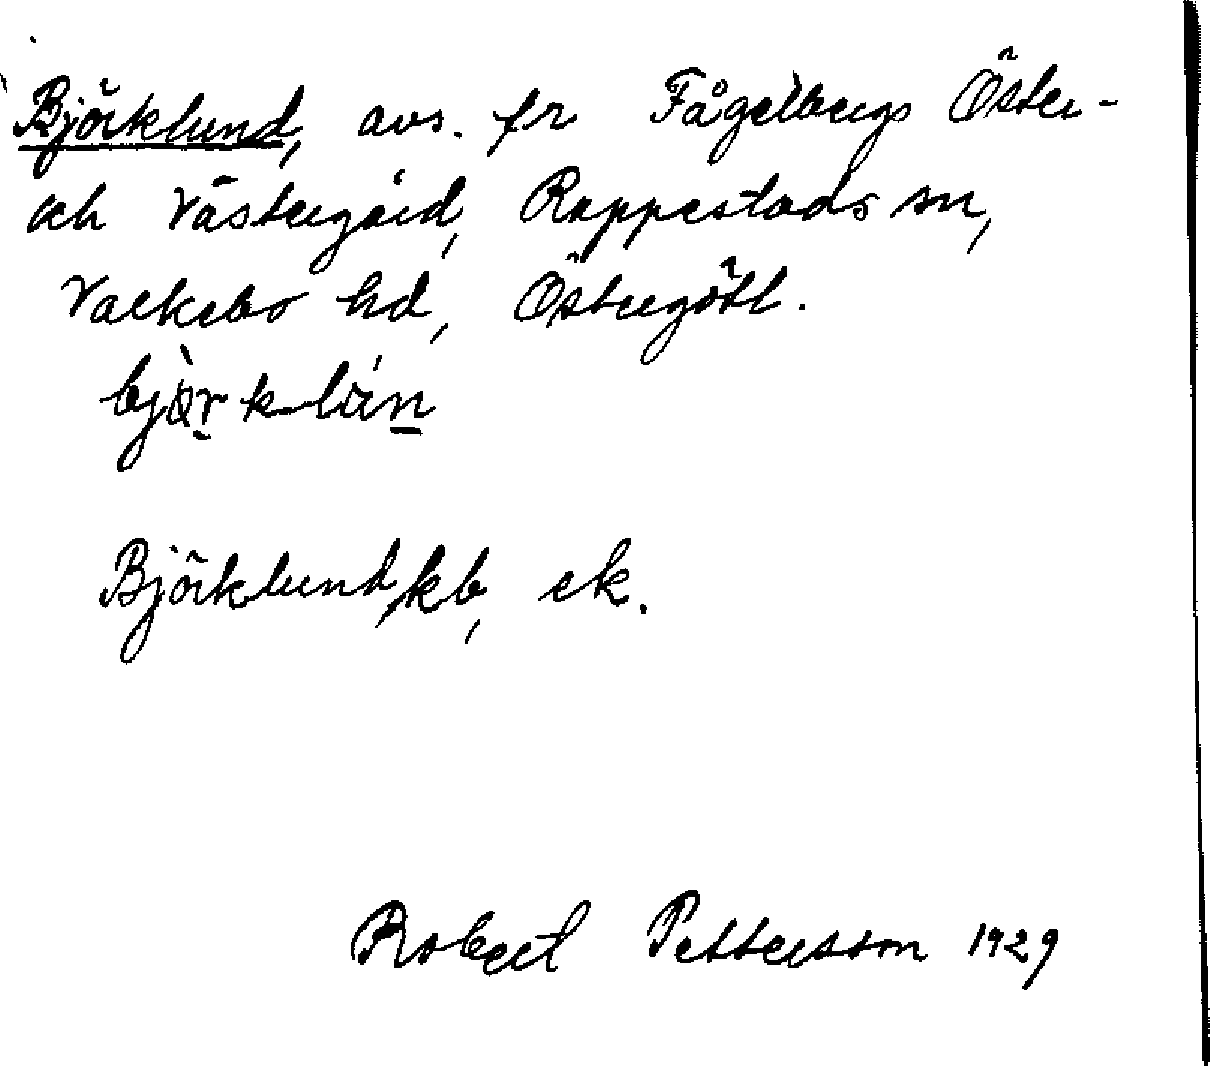 Björklund, avs. fr Fågelbergs Öster-
och Västergård, Rappestads sn,
Valkebo hd, Östergötl.
bjö̀rk-lún
Björklund, kb, ek.
Robert Pettersson 1929